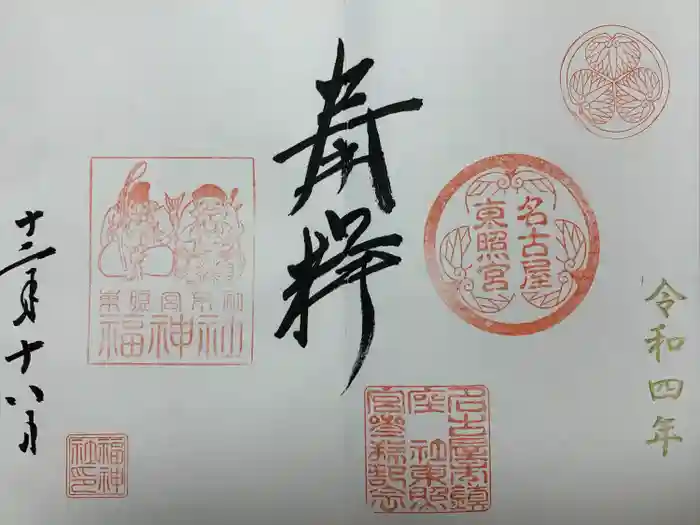 令和四年
名古屋
東照宮
名古屋市鎮
座 社東照
宮参拝記念
奉拝
東照宮末社
福神社
十二月十八日
福神
社印